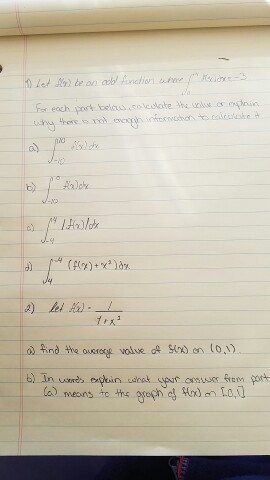 1) Let f(x) be an odd function where ∫ f(x) dx =
For each part below, calculate the value or explain
why there is not enough information to calculate it
a) ∫_{-10}^{10} f(x) dx
b) ∫_{-10}^{0} f(x) dx
c) ∫_{-4}^{4} |f(x)| dx
d) ∫_{4}^{-4} (f(x) + x²) dx
2) Let f(x) = 1/(1+x²)
a) find the average value of f(x) on (0,1).
b) In words explain what your answer from part
(a) means to the graph of f(x) on [0,1]